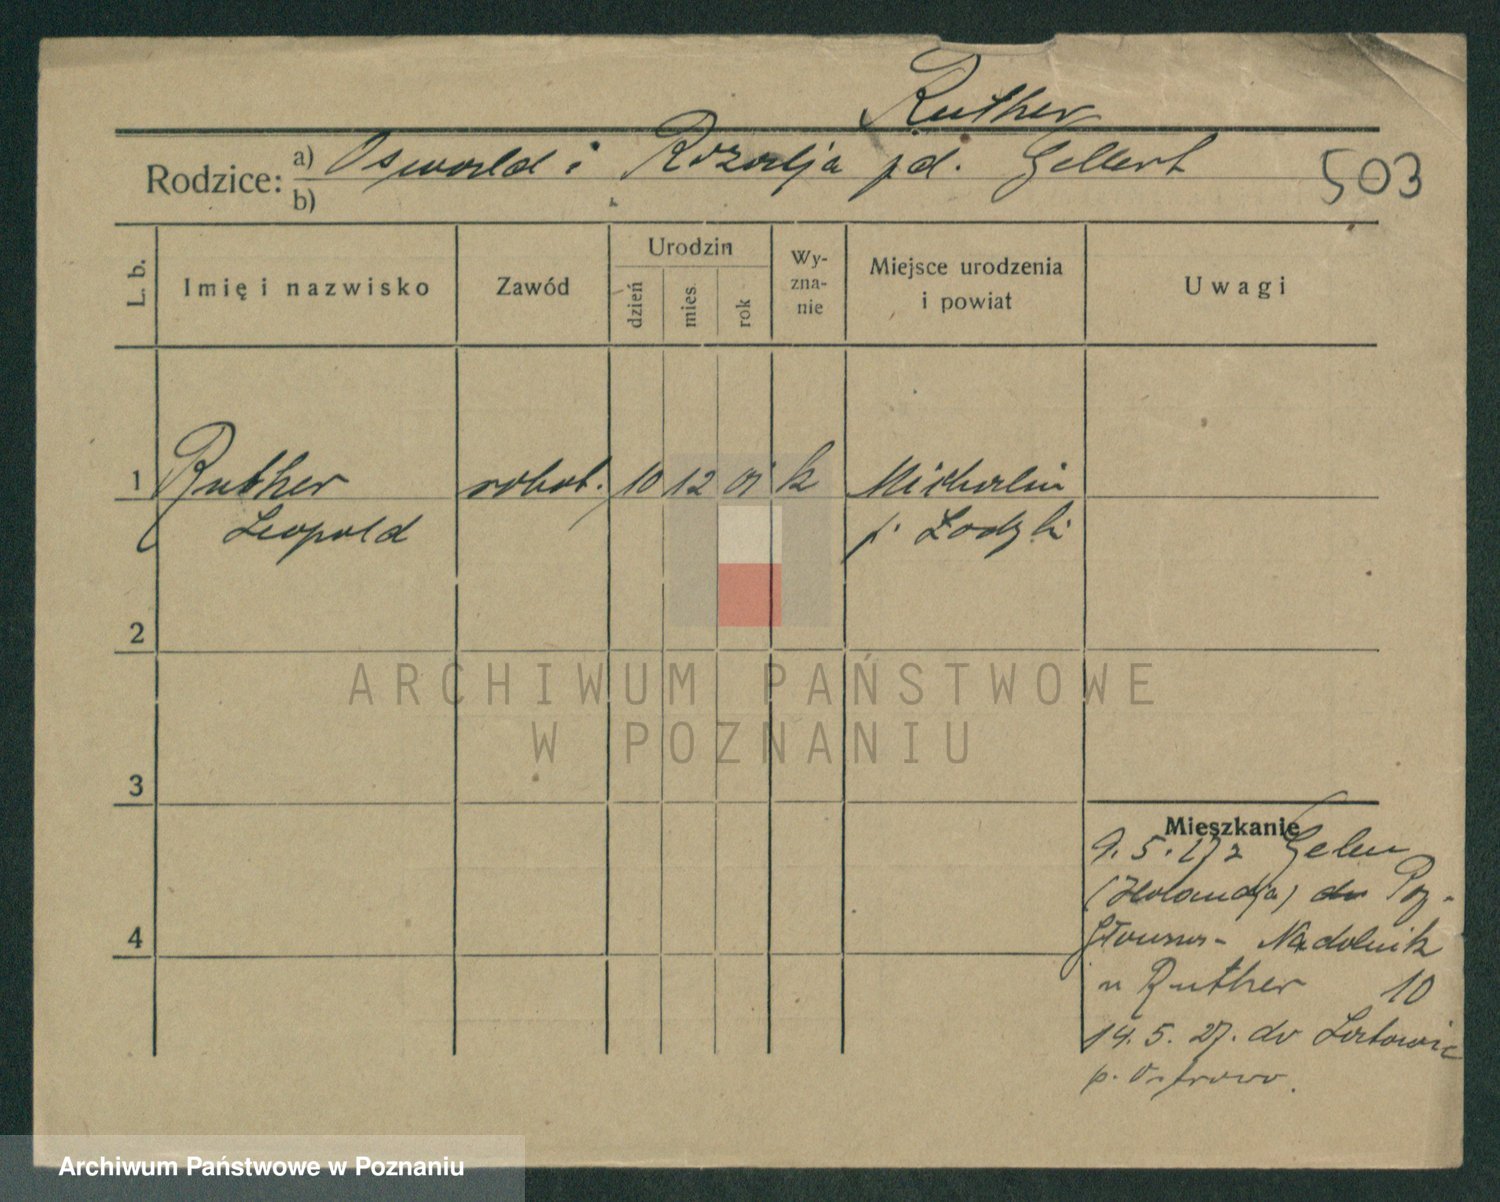 Ruther
Rodzice: a) Oswald i Rozalja jd. Gellert
b)
503
L. b.
Imię i nazwisko
Zawód
Urodzin
dzień
mies
rok
Wy-
zna-
nie
Miejsce urodzenia
i powiat
Uwagi
1 Ruther robot. 10 12 01 k Michalin
Leopold p.
2
ARCHIWUM PAŃSTWOWE
W POZNANIU
3
Mieszkanie
9. 5. 27 z
(Holandja) do Poz-
Nadolnik
u Ruther 10
14. 5. 27. do
p. Ostrowo.
4
Archiwum Państwowe w Poznaniu